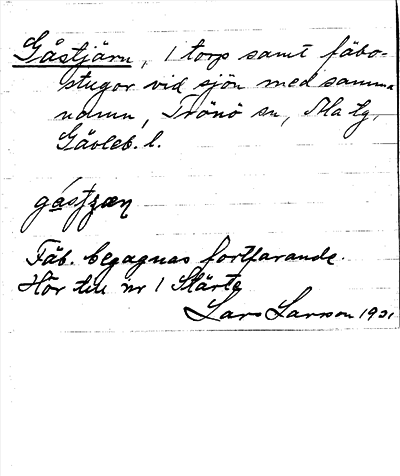 Gåstjärn, 1 torp samt fäbo-
stugor vid sjön med samma
namn, Trönö sn, Ala tg,
Gävleb. l.
Fäb. begagnas fortfarande.
Hör till nr 1 Stärte
Lars Larsson 1931